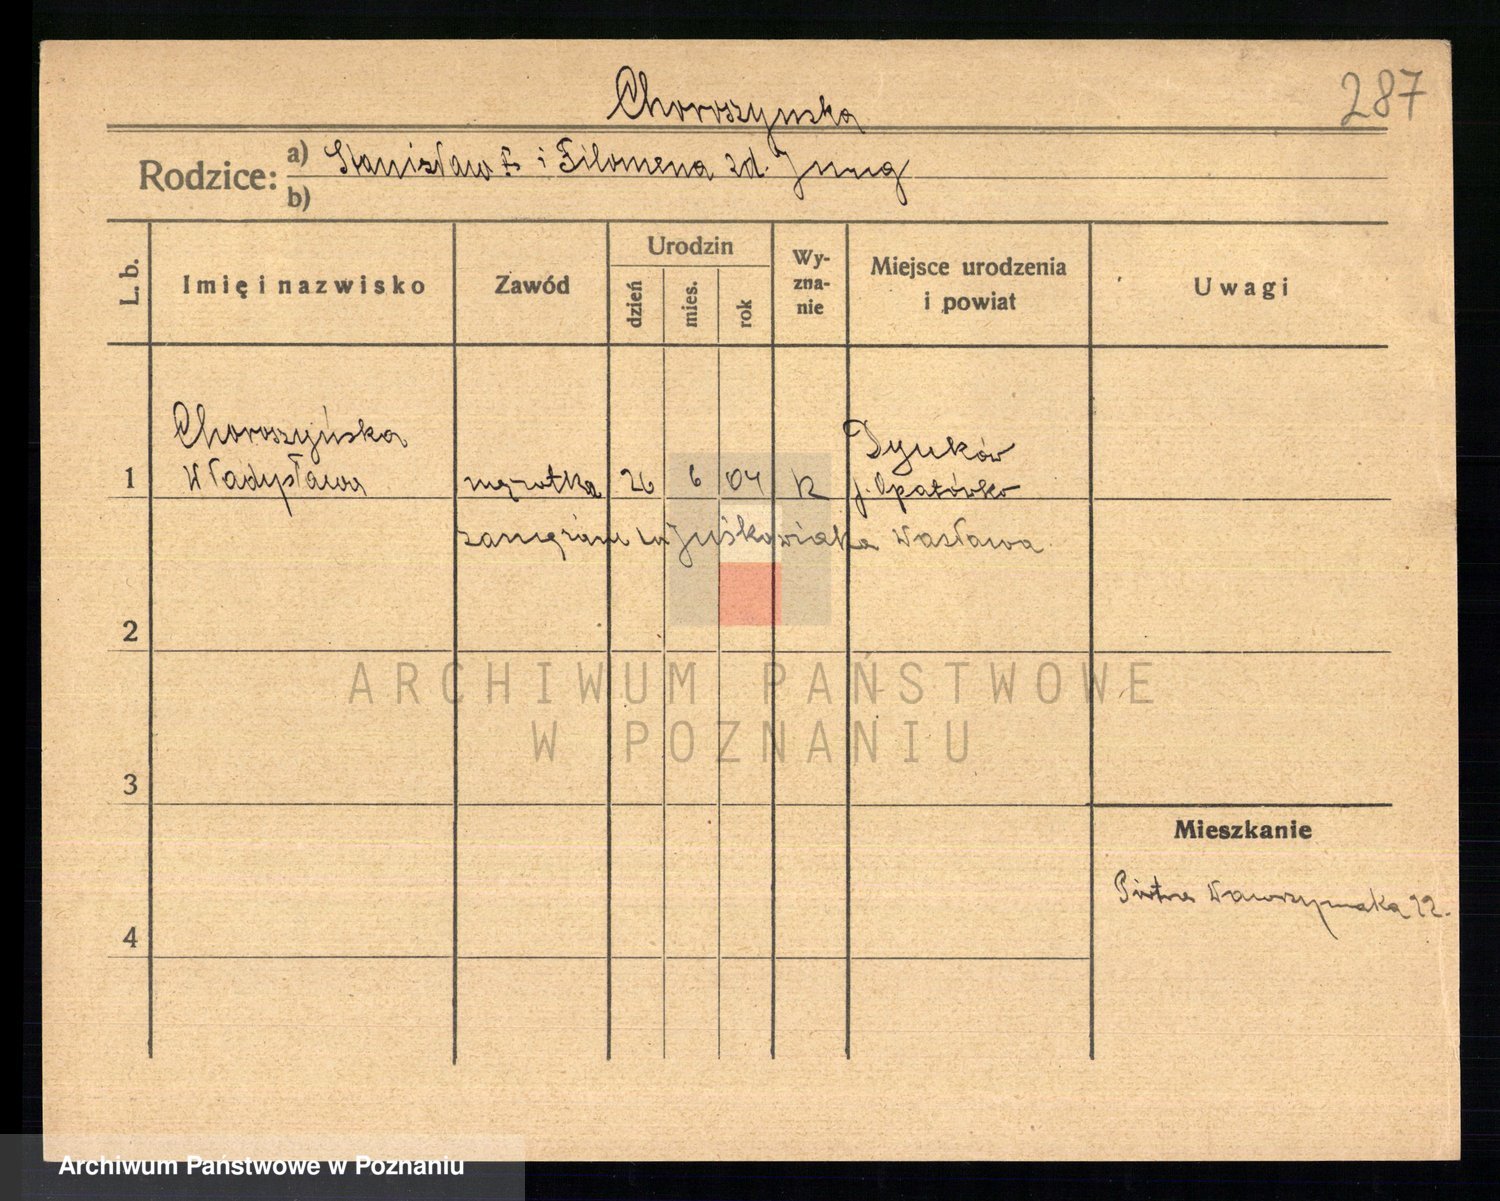 287
Choroszynska
Rodzice: a) Stanisław i Filomena zd. Jung
b)
L. b. Imię i nazwisko Zawód Urodzin dzień mies. rok Wyznanie Miejsce urodzenia i powiat Uwagi
Choroszyńska
1 Władysława mężatka 26 6 04 Dynków
p. Opatówko
zamężna za Juśkowiaka Wacława
2
3
4
Mieszkanie
Piotra Wawrzyniaka 22.
ARCHIWUM PAŃSTWOWE
W POZNANIU
Archiwum Państwowe w Poznaniu